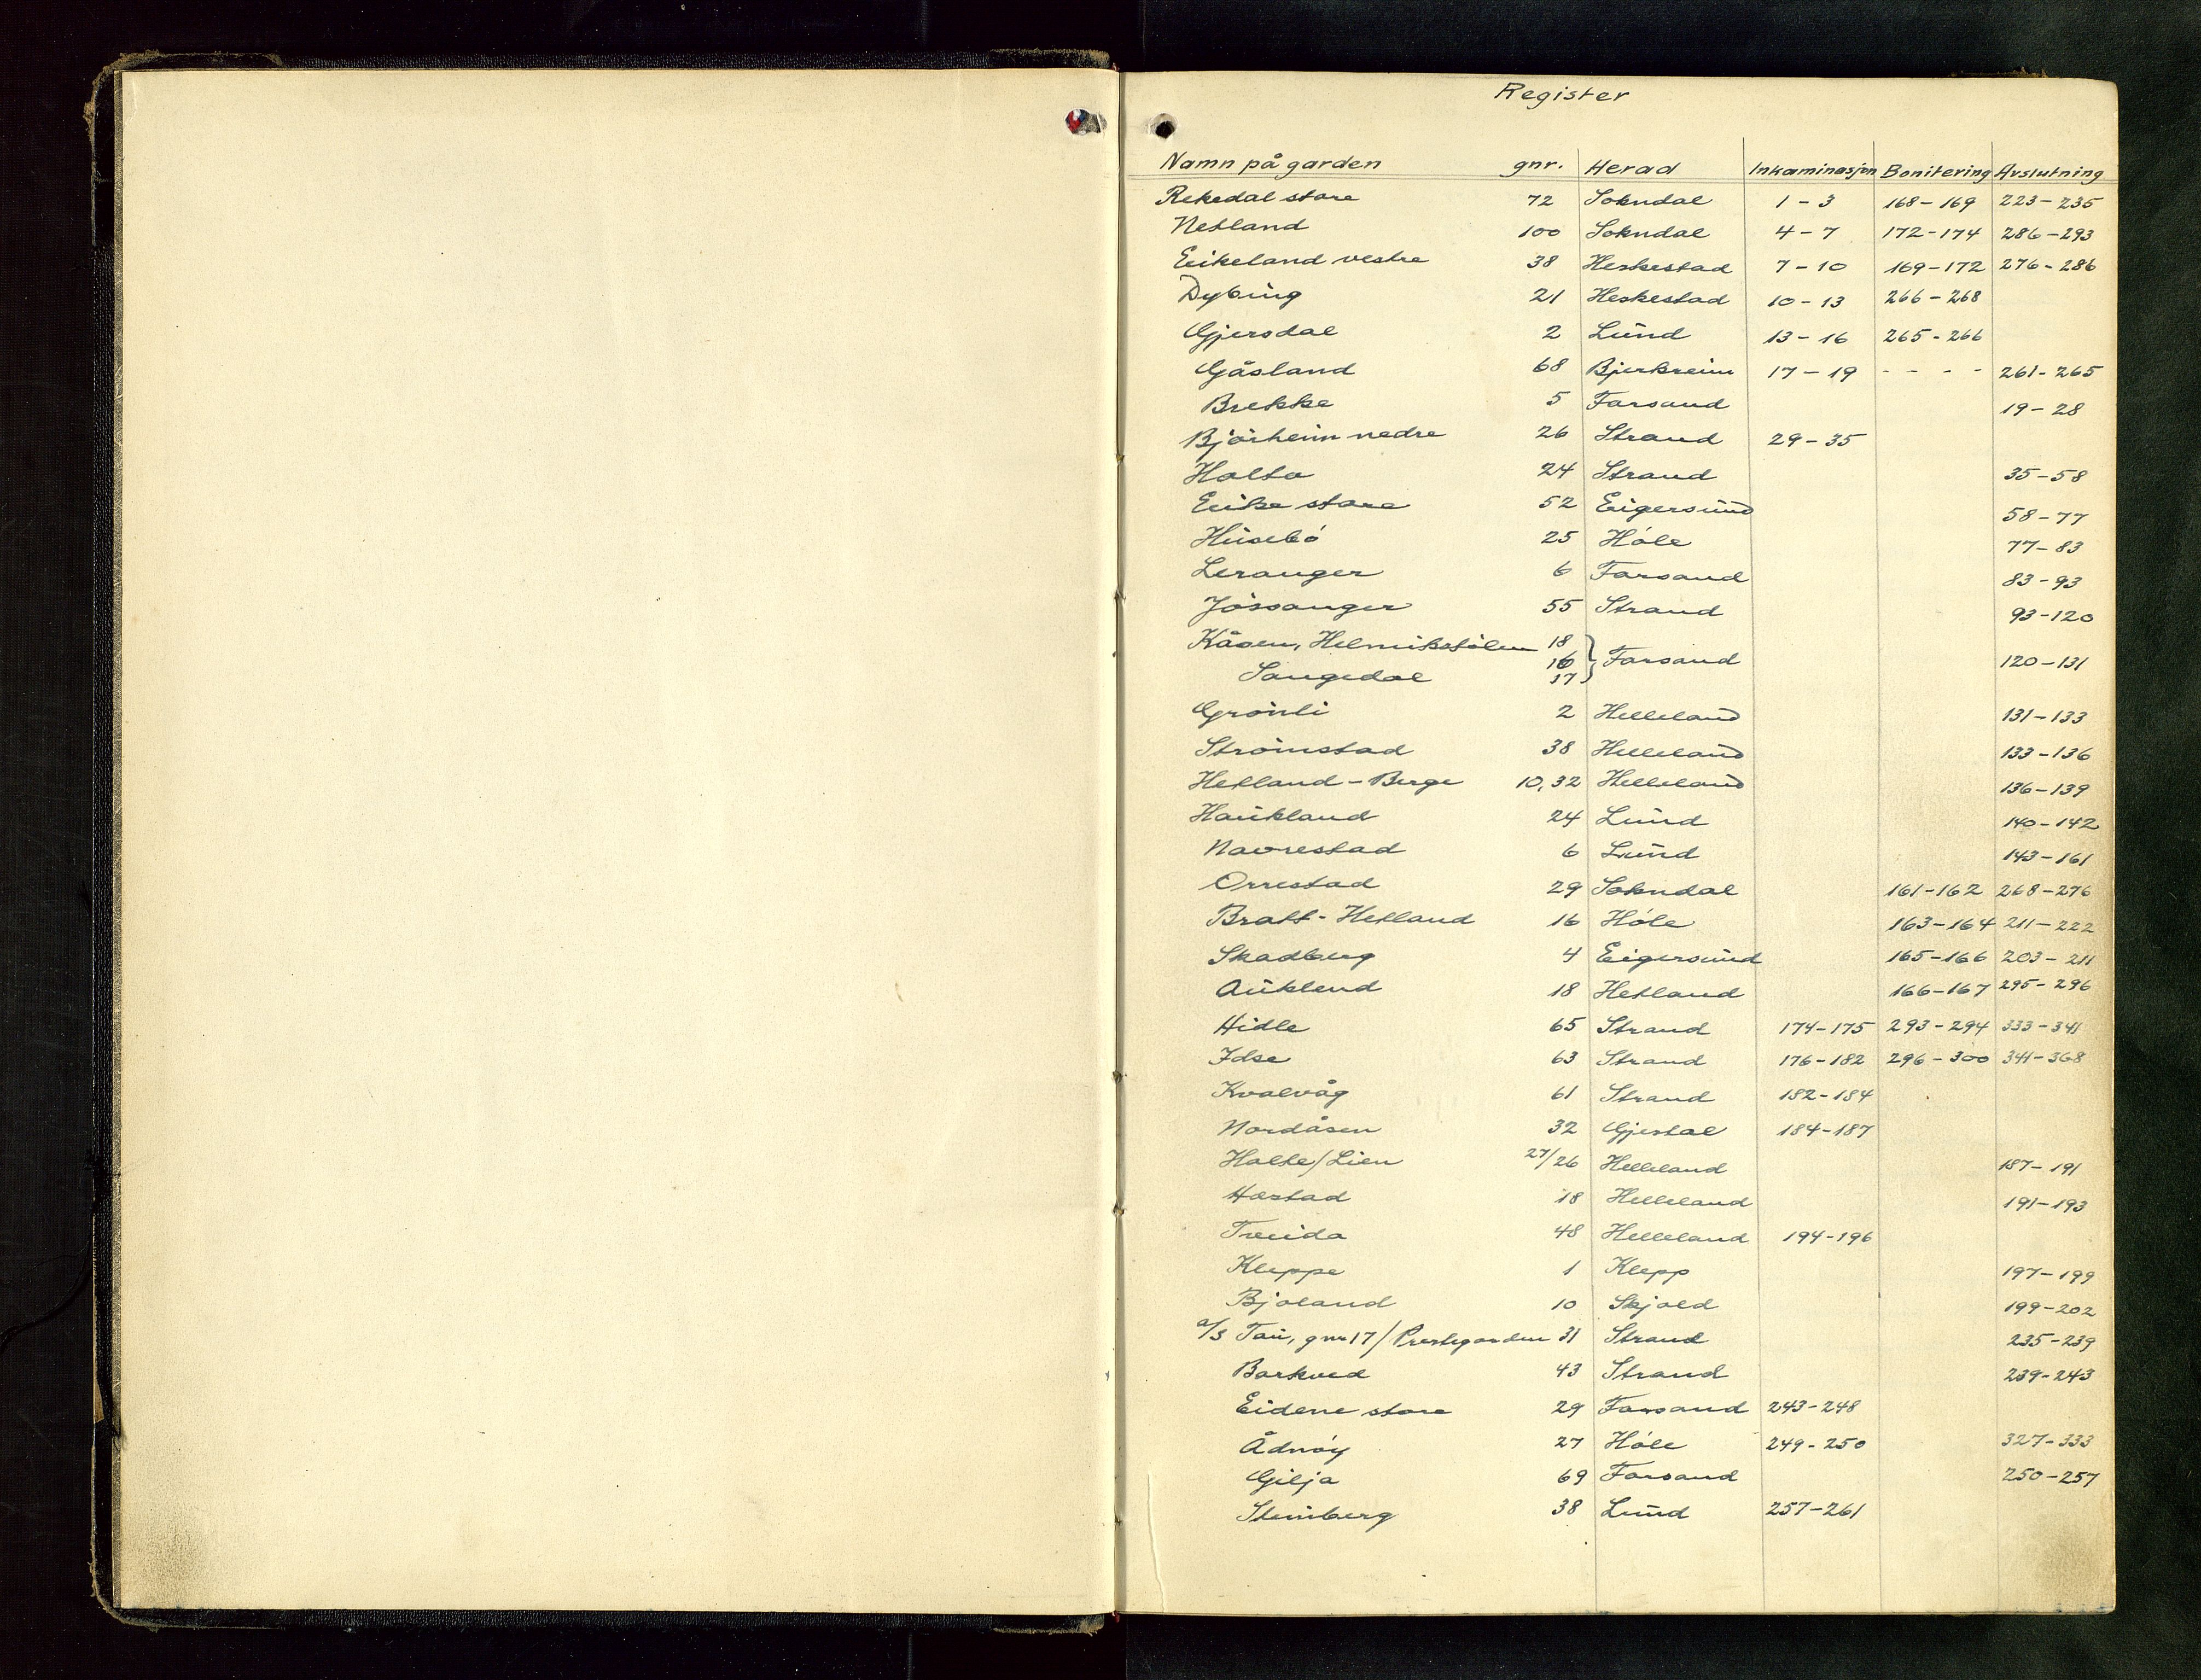 Register
Namn på garden gnr. Herad Inkaminasjon Bonitering Avslutning
Rekedal store 72 Sokndal 1-3 168-169 223-235
Netland 100 Sokndal 4-7 172-174 286-293
Eikeland vestre 38 Heskestad 7-10 169-172 276-286
Dybing 21 Heskestad 10-13 266-268
Gjersdal 2 Lund 13-16 265-266
Gåsland 68 Bjerkreim 17-19 - - - - 261-265
Brekke 5 Forsand 19-28
Bjørheim nedre 26 Strand 29-35
Holta 24 Strand 35-58
Eike store 52 Eigersund 58-77
Husebø 25 Høle 77-83
Leranger 6 Forsand 83-93
Jøssanger 55 Strand 93-120
Kåsen, Helmikstølen 18
16 } Forsand 120-131
Songedal 17
Grønli 2 Helleland 131-133
Strømstad 38 Helleland 133-136
Hetland-Berge 10, 32 Helleland 136-139
Haukland 24 Lund 140-142
Navrestad 6 Lund 143-161
Orrestad 29 Sokndal 161-162 268-276
Bratt-Hetland 16 Høle 163-164 211-222
Skadberg 4 Eigersund 165-166 203-211
Auklend 18 Hetland 166-167 295-296
Hidle 65 Strand 174-175 293-294 333-341
Idse 63 Strand 176-182 296-300 341-368
Kvalvåg 61 Strand 182-184
Nordåsen 32 Gjestal 184-187
Holte/Lien 27/26 Helleland 187-191
Hostad 18 Helleland 191-193
Treida 48 Helleland 194-196
Kleppe 1 Klepp 197-199
Bjoland 10 Skjold 199-202
a/s Tau, gnr 17/Prestegarden 31 Strand 235-239
Barkved 43 Strand 239-243
Eidene store 29 Forsand 243-248
Ådnøy 27 Høle 249-250 327-333
Gilja 69 Forsand 250-257
Steinberg 38 Lund 257-261